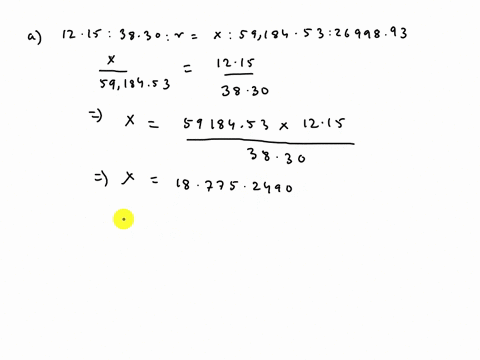 a) 12.15 : 38.30 : r = x : 59,184.53 : 26998.93
x / 59,184.53 = 12.15 / 38.30
=) x = 59184.53 x 12.15 / 38.30
=) x = 18.775.2490